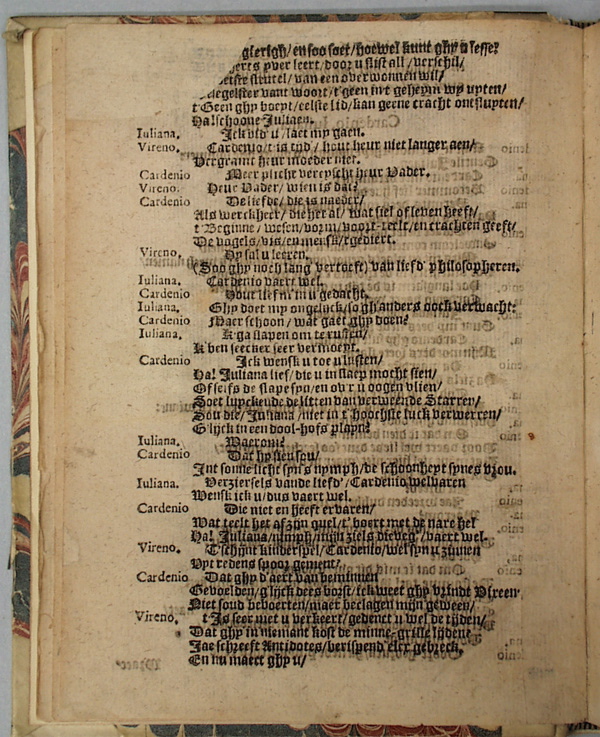 gierigh/ en soo soet/ hoewel kunt ghy u lesse?
yver leert/ door u slist all/ verschil/
sleutel/ van een overwonnen wil/
vant woort/ t'geen in't geheym wy uyten/
t'Geen ghy boeyt/ eelste lid/ kan geene cracht ontsluyten/
Ha! schoone Juliaen.
Iuliana. Ick vld' u/ laet my gaen.
Vireno. Cardenio/ t is tyd/ hout heur niet langer aen/
Vergramt heur moeder niet.
Cardenio Meer plicht vereyscht heur Vader.
Vireno. Heur Vader/ wien is dat?
Cardenio De liefde/ die is naeder/
Als werckheer/ die her al/ wat siel of leven heeft/
t'Beginne/ wesen/ vorm/ voort-teelt/ en crachten geeft/
De vogels/ vis/ en mensk/ regdiert.
Vireno. Ghy sal u leeren,
(Soo ghy noch lang vertoeft) van liefd' philosopheren.
Iuliana. Cardenio vaert wel.
Cardenio Hout liefni in u gedacht.
Iuliana. Ghy doet my ongelijck/ so gh'anders oock verwacht.
Cardenio Maer schoon/ wat gaet ghy doen?
Iuliana. K'ga slapen om te rusten/
K'ben seecker seer vermoeyt.
Cardenio Ick wensk u toe u lusten/
Ha! Juliana lief/ die u in slaep mocht sien/
Of selfs de slape syn/ en ov'r u oogen vlien/
Soet luyckende de litten van verweende Starren/
Sou die/ Juliana/ niet in t'hoochste luck verwerren/
Glijck in een dool-hofs playn?
Iuliana. Waerom?
Cardenio Dat hy sien sou/
Int sonne licht syn's nymph/ de schoonheyt synes vrou.
Iuliana. Verziersels vande liefd'/ Cardenio welvaren
Wensk ick u/ dus vaert wel.
Cardenio Die niet en heeft ervaren/
Wat teelt het afzijn quel/ t'boert met de nare hel
Ha! Juliana/ nymph/ mijn ziels vaert wel.
Vireno. T'schijnt kinderspel/ Cardenio/ wel syn u zinnen
Uyt redens spoor gement/
Cardenio Dat ghy d'aert van beminnen
Gevoelden/ glijck dees borst/ ick weet ghy vrindt Vireen
Niet soud beboerten/ maer beclagen mijn geween/
Vireno. t Is seer met u verkeert/ gedenct u wel de tijden/
Dat ghy in niemant kost de minne-grille lijden
Jae schreeft Antidotes/ verispend' elcx gebreck.
En nu maect ghy u/